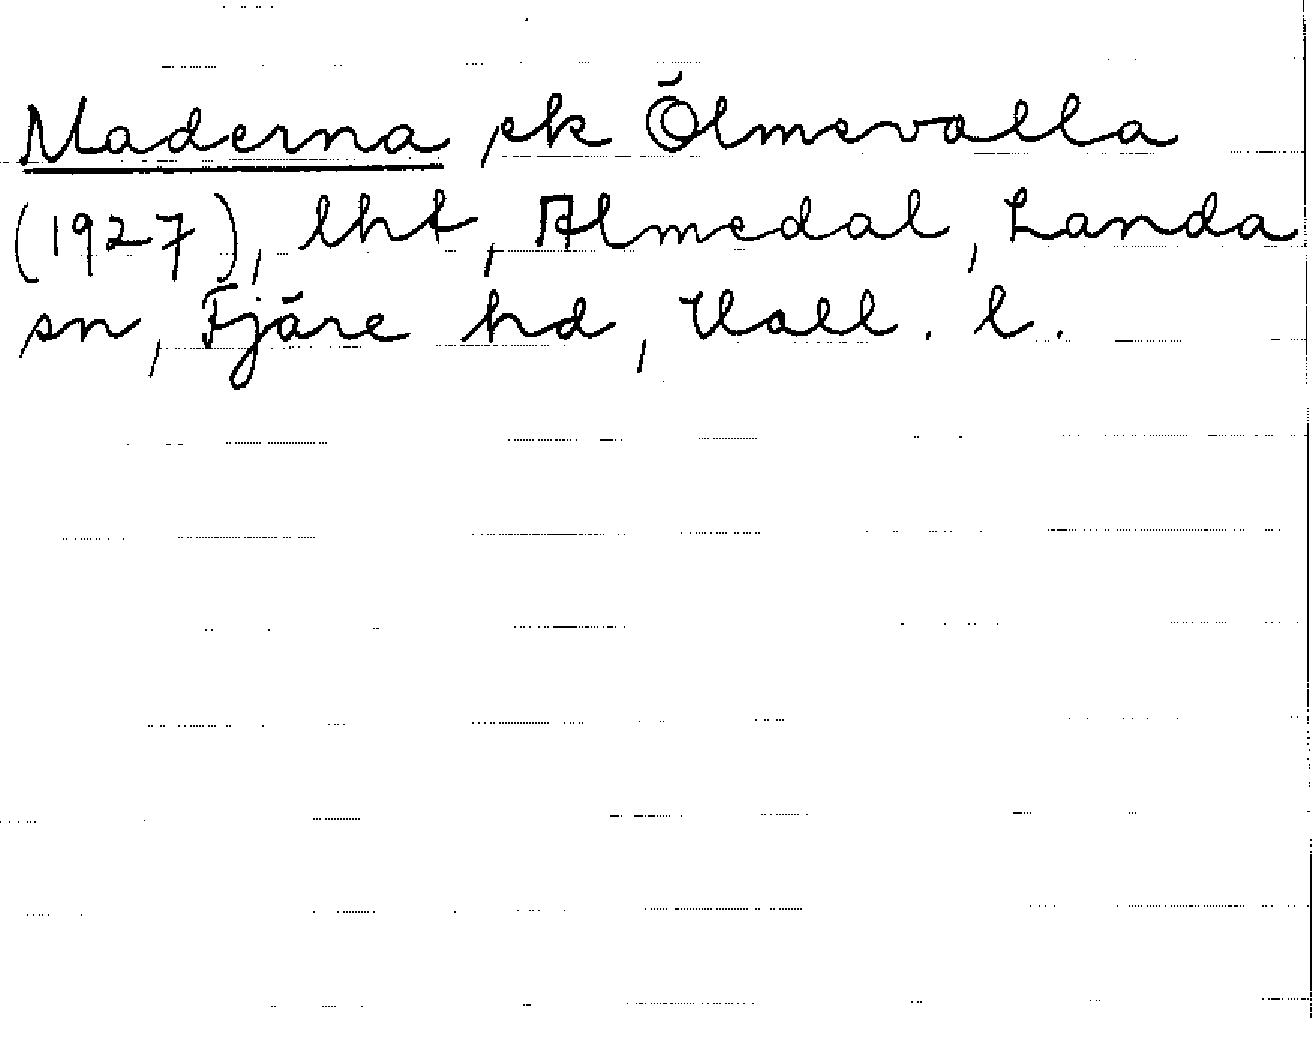 Maderna, ek Ölmevalla
(1927), lht, Almedal, Landa
sn, Fjäre hd, Hall. l.